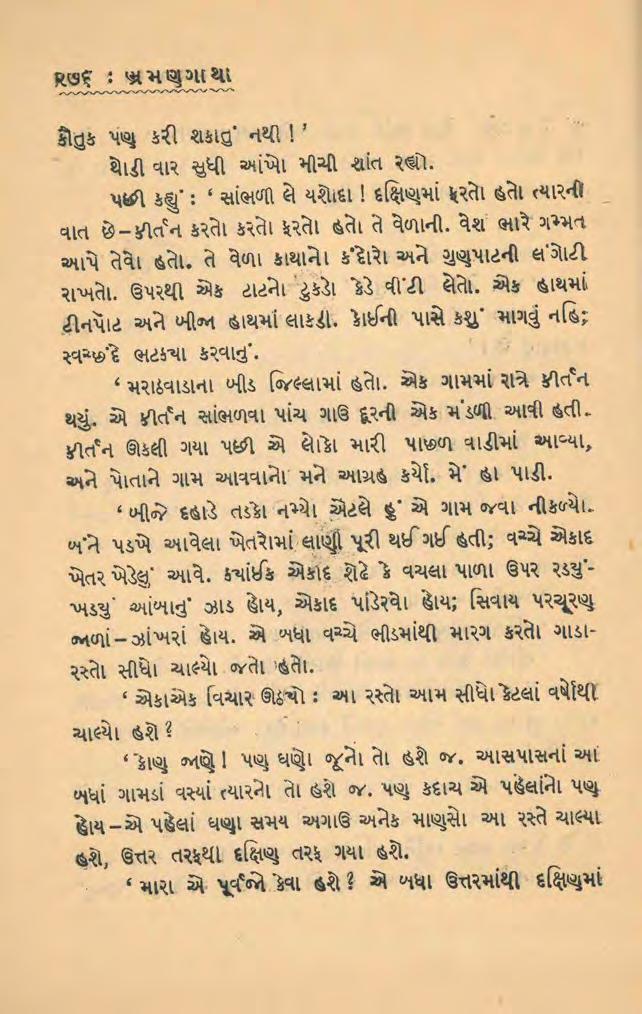 ૨૭૬ : ભ્રમણગાથા
કૌતુક પણ કરી શકાતું નથી ! '
થોડી વાર સુધી આંખો મીચી શાંત રહ્યો.
પછી કહ્યું : ‘ સાંભળી લે યશોદા ! દક્ષિણમાં ફરતો હતો ત્યારની
વાત છે – કીર્તન કરતો કરતો ફરતો હતો તે વેળાની. વેશ ભારે ગમ્મત
આપે તેવો હતો. તે વેળા કાથાનો કંદોરો અને ગુણપાટની લંગોટી
રાખતો. ઉપરથી એક ટાટનો ટુકડો કેડે વીંટી લેતો. એક હાથમાં
ટીનપૉટ અને બીજા હાથમાં લાકડી. કોઈની પાસે કશું માગવું નહિ;
સ્વચ્છંદે ભટકયા કરવાનું.
‘ મરાઠવાડાના બીડ જિલ્લામાં હતો. એક ગામમાં રાત્રે કીર્તન
થયું. એ કીર્તન સાંભળવા પાંચ ગાઉ દૂરની એક મંડળી આવી હતી.
કીર્તન ઊકલી ગયા પછી એ લોકો મારી પાછળ વાડીમાં આવ્યા,
અને પોતાને ગામ આવવાનો મને આગ્રહ કર્યો. મેં હા પાડી.
‘ બીજે દહાડે તડકો નમ્યો એટલે હું એ ગામ જવા નીકળ્યો.
બંને પડખે આવેલા ખેતરોમાં લાણી પૂરી થઈ ગઈ હતી; વચ્ચે એકાદ
ખેતર ખેડેલું આવે. કયાંઈક એકાદ શેઢે કે વચલા પાળા ઉપર રડયું-
ખડયું આંબાનું ઝાડ હોય, એકાદ પાંડેરવો હોય; સિવાય પરચૂરણ
જાળાં – ઝાંખરાં હોય. એ બધા વચ્ચે ભીડમાંથી મારગ કરતો ગાડા-
રસ્તો સીધો ચાલ્યો જતો હતો.
‘ એકાએક વિચાર ઊઠયો : આ રસ્તો આમ સીધો કેટલાં વર્ષોથી
ચાલ્યો હશે ?
‘ કોણ જાણે ! પણ ઘણો જૂનો તો હશે જ. આસપાસનાં આ
બધાં ગામડાં વસ્યાં ત્યારનો તો હશે જ. પણ કદાચ એ પહેલાંનો પણ
હોય – એ પહેલાં ઘણા સમય અગાઉ અનેક માણસો આ રસ્તે ચાલ્યા
હશે, ઉત્તર તરફથી દક્ષિણ તરફ ગયા હશે.
‘ મારા એ પૂર્વજો કેવા હશે ? એ બધા ઉત્તરમાંથી દક્ષિણમાં